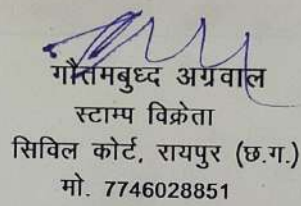 गौतमबुध्द अग्रवाल
स्टाम्प विक्रेता
सिविल कोर्ट, रायपुर (छ.ग.)
मो. 7746028851